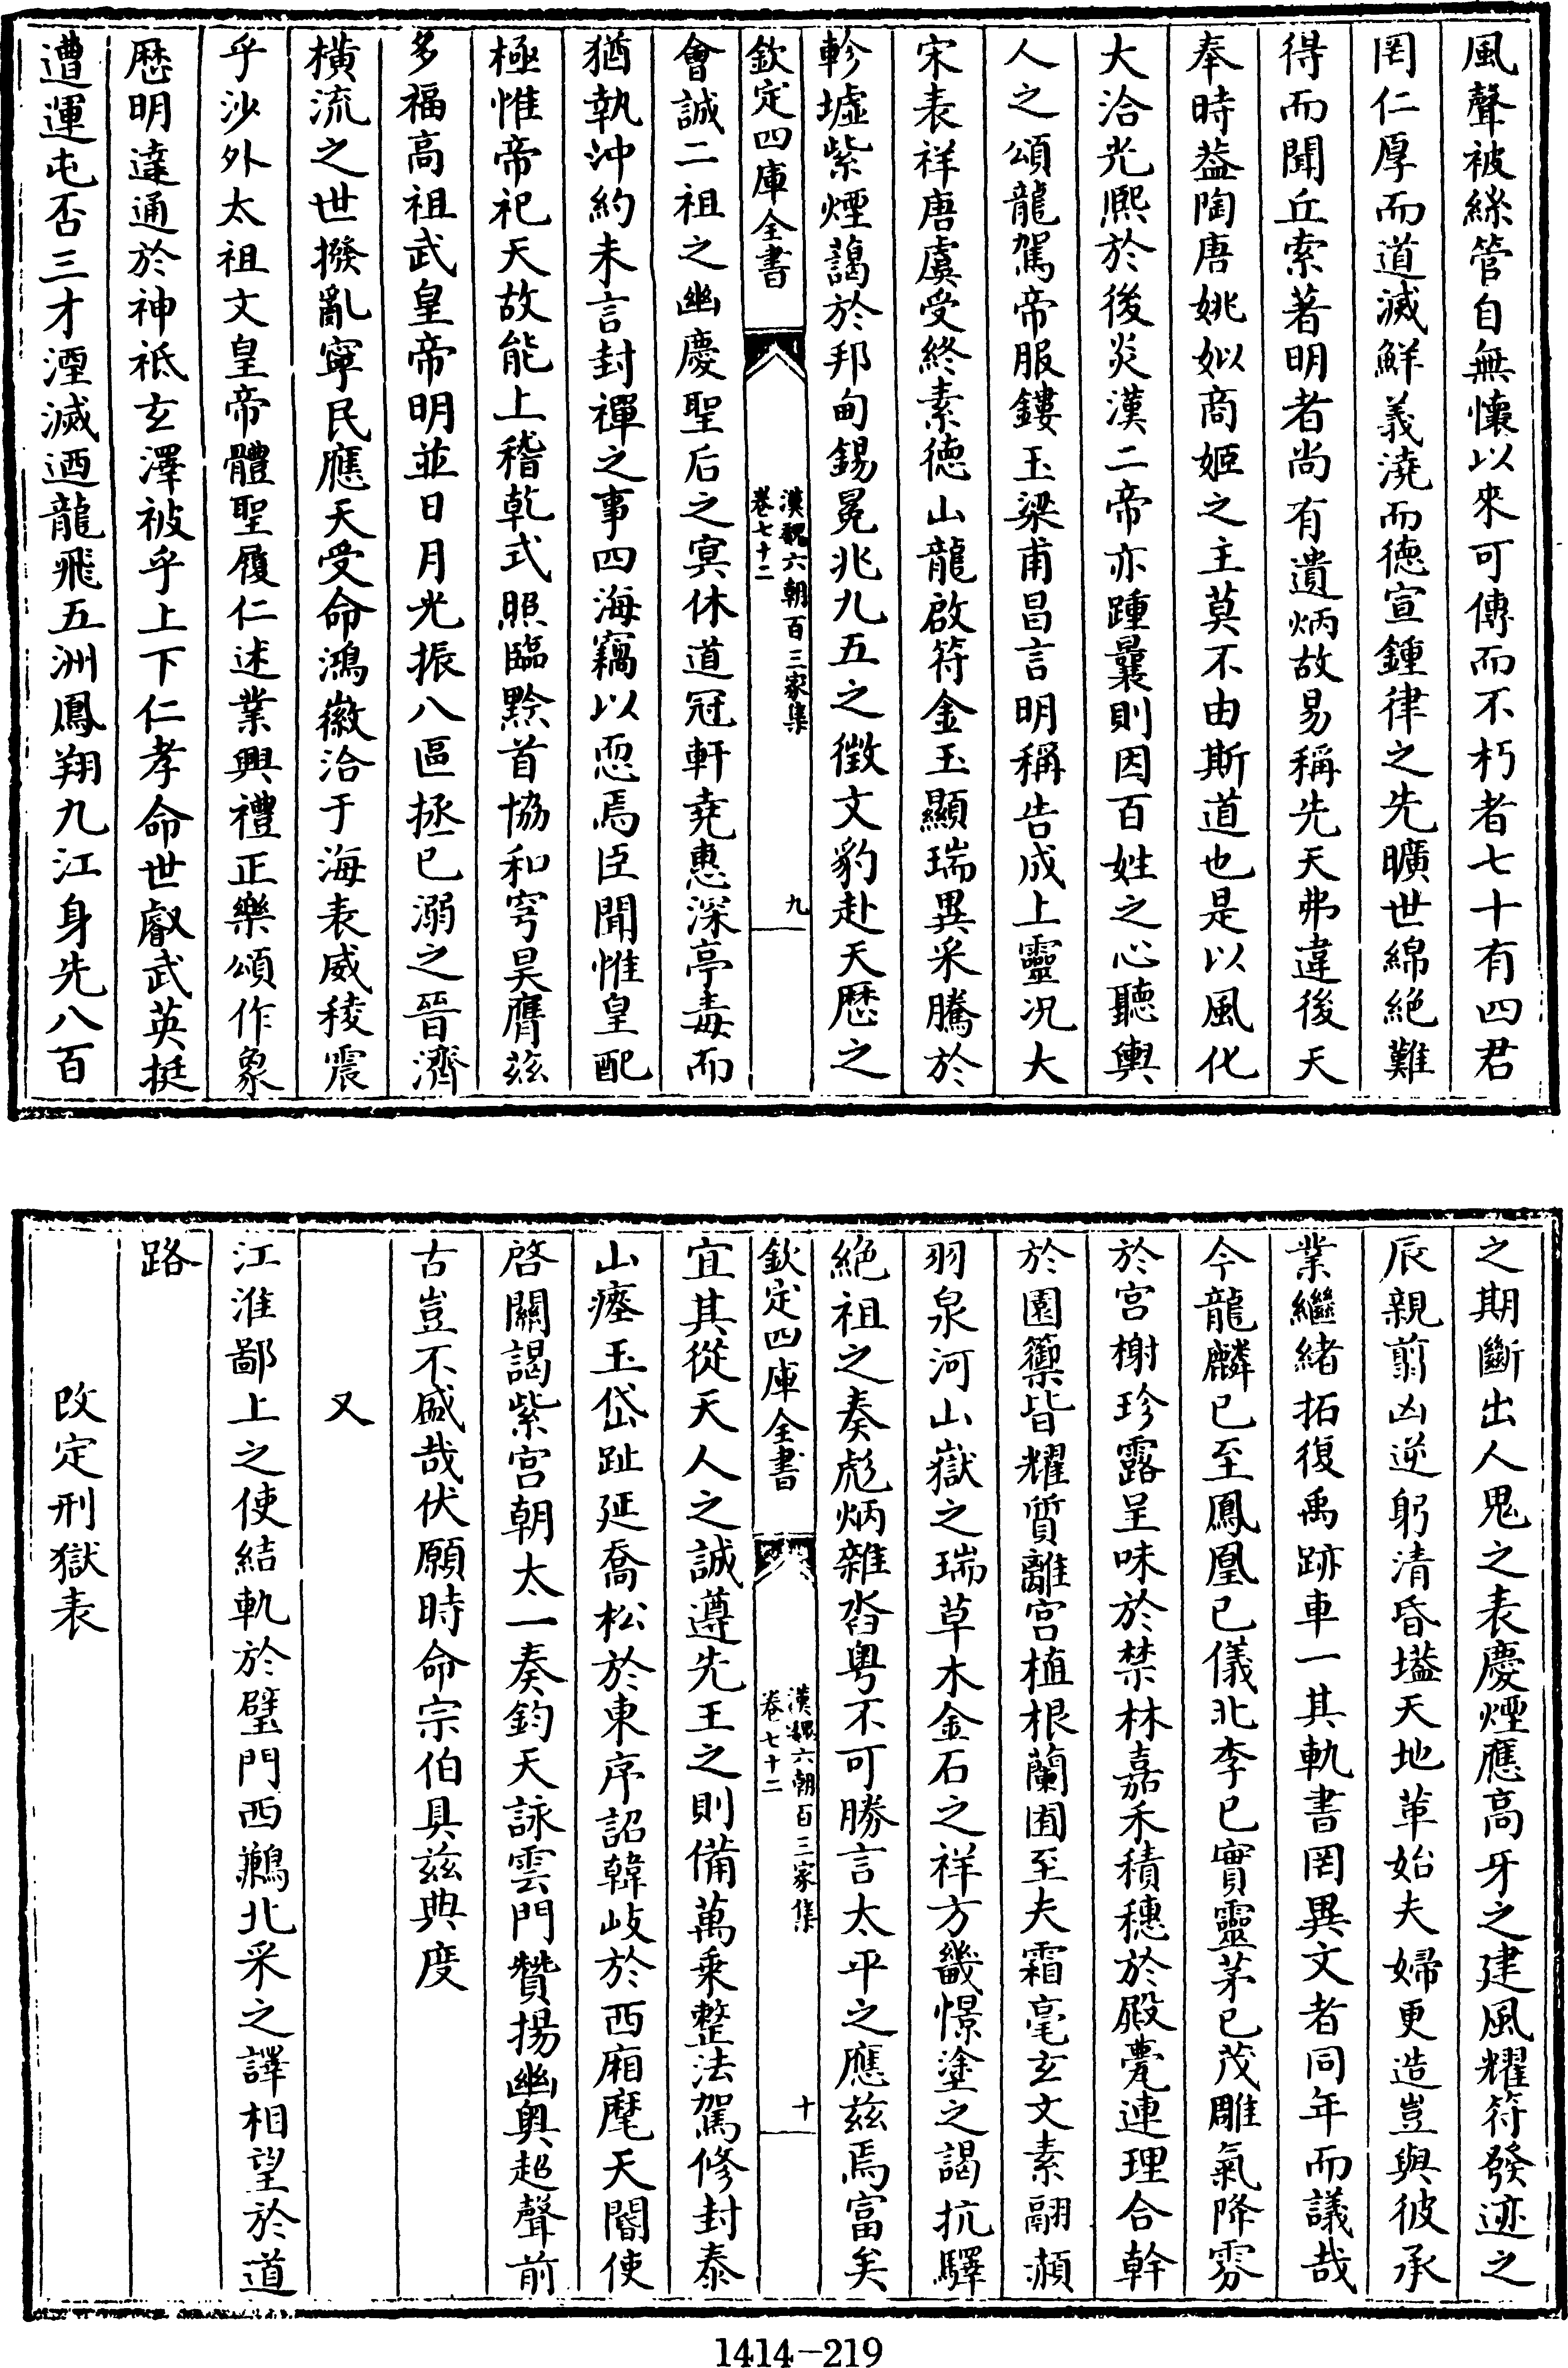 風聲被絲管自無懷以來可傳而不朽者七十有四君
罔仁厚而道滅鮮義澆而德宣鍾律之先曠世綿絶難
得而聞丘索著明者尚有遺炳故易稱先天弗違後天
奉時葢陶唐姚姒商姬之主莫不由斯道也是以風化
大洽光熙於後炎漢二帝亦踵曩則因百姓之心聽輿
人之頌龍駕帝服鏤玉梁甫昌言明稱告成上靈况大
宋表祥唐虞受終素德山龍啟符金玉顯瑞異采騰於
軫墟紫煙藹於邦甸錫冕兆九五之徵文豹赴天厯之
欽定四庫全書
漢魏六朝百三家集
卷七十二
九
會誠二祖之幽慶聖后之冥休道冠軒堯惠深亭毒而
猶執沖約未言封禪之事四海竊以恧焉臣聞惟皇配
極惟帝祀天故能上稽乾式照臨黔首協和穹昊膺兹
多福高祖武皇帝明並日月光振八區拯已溺之晉濟
横流之世撥亂寧民應天受命鴻徽洽于海表威稜震
乎沙外太祖文皇帝體聖履仁述業興禮正樂頌作象
厯明達通於神祇玄澤被乎上下仁孝命世叡武英挺
遭運屯否三才湮滅迺龍飛五洲鳳翔九江身先八百
之期斷出人鬼之表慶煙應高牙之建風耀符發迹之
辰親翦凶逆躬清昏壒天地革始夫婦更造豈與彼承
業繼緒拓復禹跡車一其軌書罔異文者同年而議哉
今龍麟已至鳳凰已儀北李已實靈茅已茂雕氣降雰
於宫榭珍露呈味於禁林嘉禾積穗於殿甍連理合幹
於園籞皆耀質離宫植根蘭囿至夫霜毫玄文素翮頳
羽泉河山嶽之瑞草木金石之祥方畿憬塗之謁抗驛
絶祖之奏彪炳雜沓粤不可勝言太平之應兹焉富矣
欽定四庫全書
漢魏六朝百三家集
卷七十二
十
宜其從天人之誠遵先王之則備萬乗整法駕修封泰
山瘞玉岱趾延喬松於東序詔韓岐於西廂麾天閽使
啓關謁紫宫朝太一奏鈞天詠雲門贊揚幽奥超聲前
古豈不盛哉伏願時命宗伯具兹典度
又
江淮鄙上之使結軌於璧門西鶼北采之譯相望於道
路
改定刑獄表
1414-219